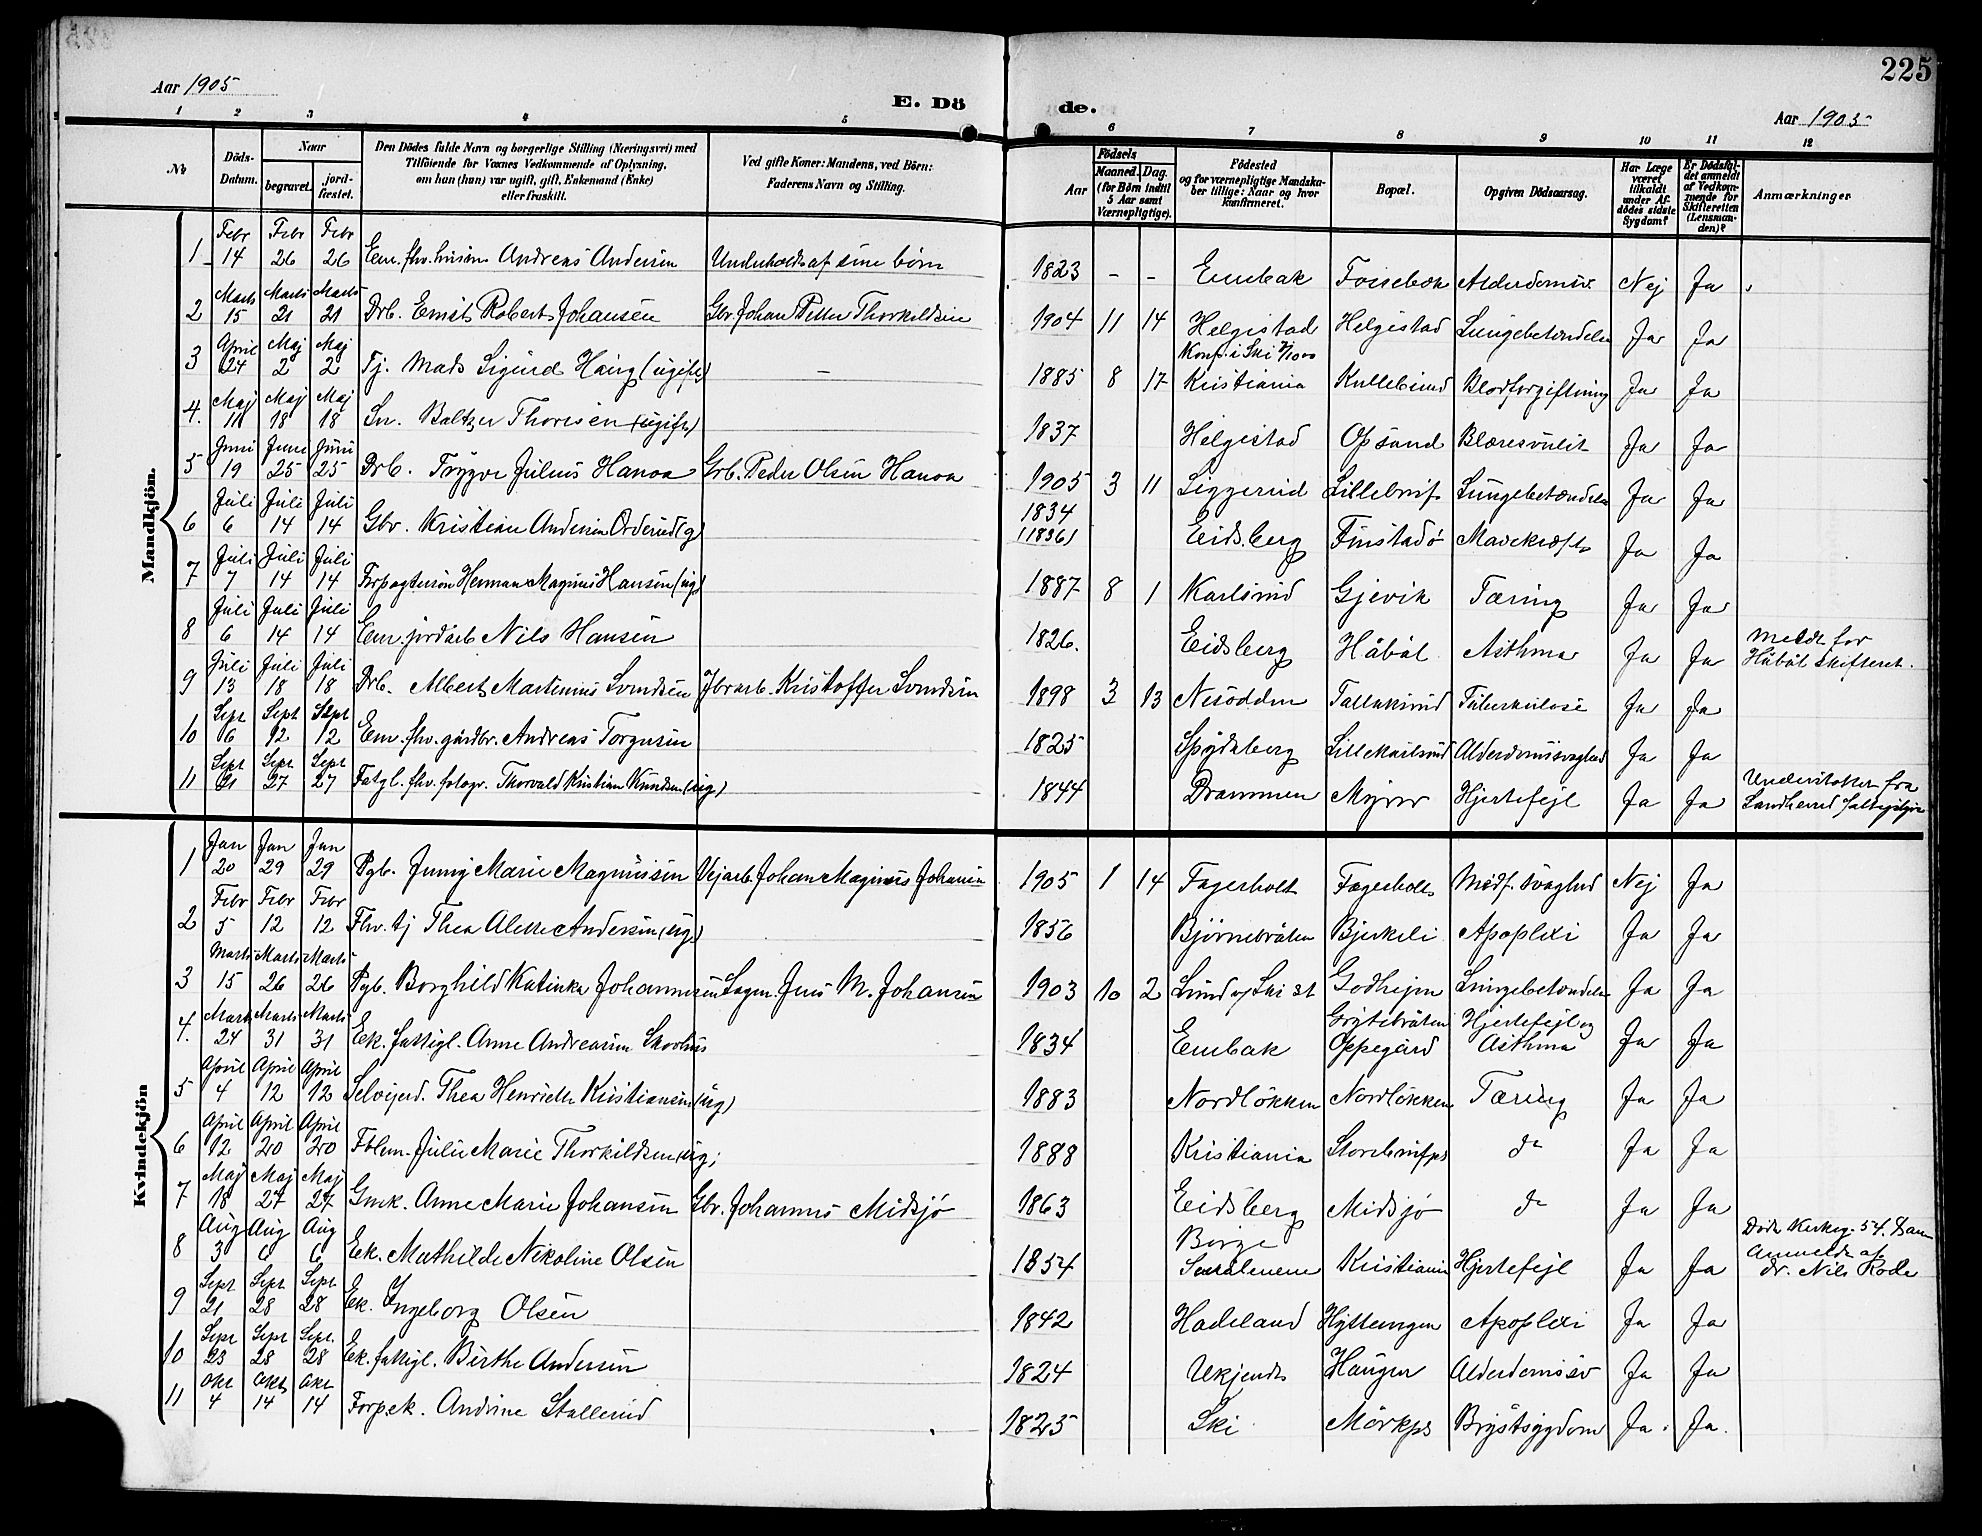 225
Aar 1905
E. Dö de.
Aar 1905
1 2 3 4 5 6 7 8 9 10 11 12
No
Döds-Datum.
Naar
begravet.
jordfæstet.
Den Dödes fulde Navn og borgerlige Stilling (Næringsvei) med
Tilföiende for Voxnes Vedkommende af Oplysning,
om han (hun) var ugift, gift, Enkemand (Enke)
eller fraskilt.
Ved gifte Koner: Mandens, ved Börn:
Faderens Navn og Stilling.
Födsels
Aar
Maaned. Dag.
(for Börn indtil
5 Aar samt
Værnepligtige).
Födested
og for værnepligtige Mandskaber tillige: Naar og hvor
konfirmeret.
Bopæl.
Opgiven Dödsaarsag.
Har Læge
været
tilkaldt
under Afdödes sidste
Sygdom?
Er Dödsfaldet anmeldt
af Vedkommende for
Skifteretten
(Lensmanden)?
Anmærkninger
Mandkjön.
1 Febr 14 Febr 26 Febr 26 Em. fhv. husm Andreas Andersen Underholdt af sine börn 1823 - - Embak Fossebæk Alderdomssv Nej Ja
2 Marts 15 Marts 21 Marts 21 Drb. Ernst Robert Johansen Gbr. Johan Petter Thorkildsen 1904 11 14 Helgistad Helgistad Lungebetændelse Ja Ja
3 April 24 Maj 2 Maj 2 Tj. Mads Sigurd Haug (ugift) - 1885 8 17 Konf. i Ski Kristiania Kullebund Blodforgiftning Ja Ja
4. Maj 11 Maj 18 Maj 18 Sn. Baltzer Thoresen (ugift) 1837 Helgistad Opsand Blæresvulst Ja Ja
5 Juni 19 Juni 25 Juni 25 Drb. Trygve Julius Hanoa Grb. Peder Olsen Hanoa 1905 3 11 Siggerud Lungebetændelse Ja Ja
6 Juli 6 Juli 14 Juli 14 Gbr. Kristian Andersen Orderud (g) 1834 (1836) Eidsberg Finstadö Mavekræft Ja Ja
7 Juli 7 Juli 14 Juli 14 Forpagtersön Herman Magnus Hansen (ug) 1887 8 1 Karlsrud Gjevik Tæring Ja Ja
8 Juli 6 Juli 14 Juli 14 Em. jordarb Nils Hansen 1826. Eidsberg Håböl Asthma Ja Ja Meldt for Håböl Skifteret.
9 Juli 13 Juli 18 Juli 18 Drb. Albert Martinius Svendsen Jbrarb. Kristoffer Svendsen 1898 3 13 Nesodden Tallaksrud Tuberkulose Ja Ja
10 Sept 6 Sept 12 Sept 12 Em. fhv. gårdbr. Andreas Torgersen 1825 Spydeberg Lille Karlsrud Alderdomssvaghed Ja Ja
11 Sept 21 Sept 27 Sept 27 Fatgl. fhv. fotogr. Thorvald Kristian Knudsen (ug) 1844 Drammen Myrer Hjertefejl Ja Ja Understöttet fra
Kvindekjön
1 Jan 20 Jan 29 Jan 29 Pgb. Jenny Marie Magnussen Vejarb. Johan Magnus Johansen 1905 1 14 Fagerholt Fagerholt Medf. svaghed Nej Ja
2 Febr 5 Febr 12 Febr 12 Fhv. tj Thea Alette Andersen (ug) 1856 Björnebråten Bjerkeli Apoplexi Ja Ja
3 Marts 15 Marts 26 Marts 26 Pgb. Borghild Katinka Johannesen Sagm. Jens M. Johansen 1903 10 2 Lund v/ Ski st Godhejm Lungebetændelse Ja Ja
4. Marts 24 Marts 31 Marts 31 Ek. fattigl. Anne Andreasen Skovhus 1834 Embak Grytebråten Oppegård Hjertefejl og Asthma Ja Ja
5 April 4 April 12 April 12 Selvejerd. Thea Henriette Kristiansen (ug) 1883 Nordlökken Nordlökken Tæring Ja Ja
6 April 12 April 20 April 20 Julie Marie Thorkildsen (ug) 1888 Kristiania do Ja Ja
7 Maj 18 Maj 27 Maj 27 Gmk. Anne Marie Johansen Gbr. Johannes Midsjö 1863 Eidsberg Midsjö do Ja Ja
8 Aug 3 Aug 6 Aug 6 Ek. Mathilde Nikoline Olsen 1854 Borge Smaalenene Kristiania Hjertefejl Ja Ja Död Kirkeg. 54. Anmeldt af dr. Nils Rode
9 Sept 21 Sept 28 Sept 28 Ek. Ingeborg Olsen 1842 Hadeland Hytteengen Apoplexi Ja Ja
10 Sept 23 Sept 28 Sept. 28 Ek. fattigl. Birthe Andersen 1824 Ukjendt Haugen Alderdomssv Ja Ja
11 Okt 4 Okt 14 Okt 14 Forp.ek. Andrine Stallerud 1825 Ski Mörkps Brystsygdom Ja. Ja.